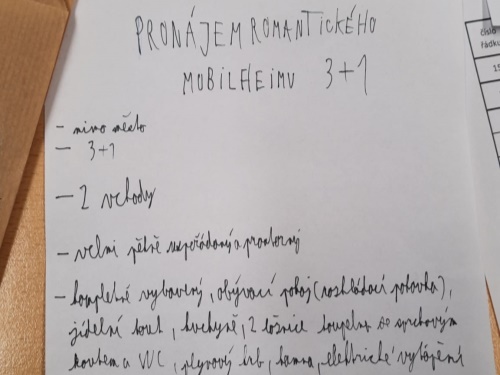 PRONÁJEM ROMANTICKÉHO
MOBILHEIMU 3+1
- mimo město
- 3+1
- 2 vchody
- velmi pěkně uspořádaný a prostorný
- kompletně vybavený, obývací pokoj (rozkládací pohovka),
jídelní kout, kuchyně, 2 ložnice koupelna se sprchovým
koutem a WC, plynový krb, kamna, elektrické vytápění
číslo
řádku
15